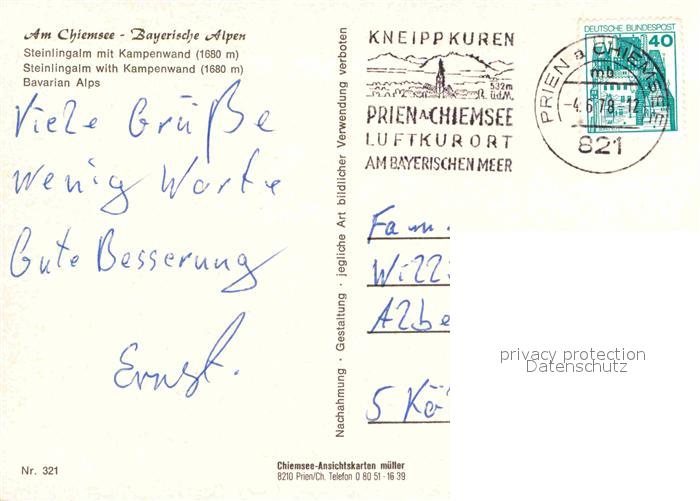 Am Chiemsee - Bayerische Alpen
Steinlingalm mit Kampenwand (1680 m)
Steinlingalm with Kampenwand (1680 m)
Bavarian Alps
Viele Grüße
wenig Worte
Gute Besserung
Ernst.
Nr. 321
Nachahmung · Gestaltung · jegliche Art bildlicher Verwendung verboten
Chiemsee-Ansichtskarten müller
8210 Prien/Ch. Telefon 0 80 51 - 16 39
KNEIPPKUREN
532m
ü.d.M.
PRIEN A. CHIEMSEE
LUFTKURORT
AM BAYERISCHEN MEER
PRIEN a CHIEMSEE
mb
-4.6.78.-12
821
DEUTSCHE BUNDESPOST
40
Fam.
Willi
Albe
5 Kö
privacy protection
Datenschutz